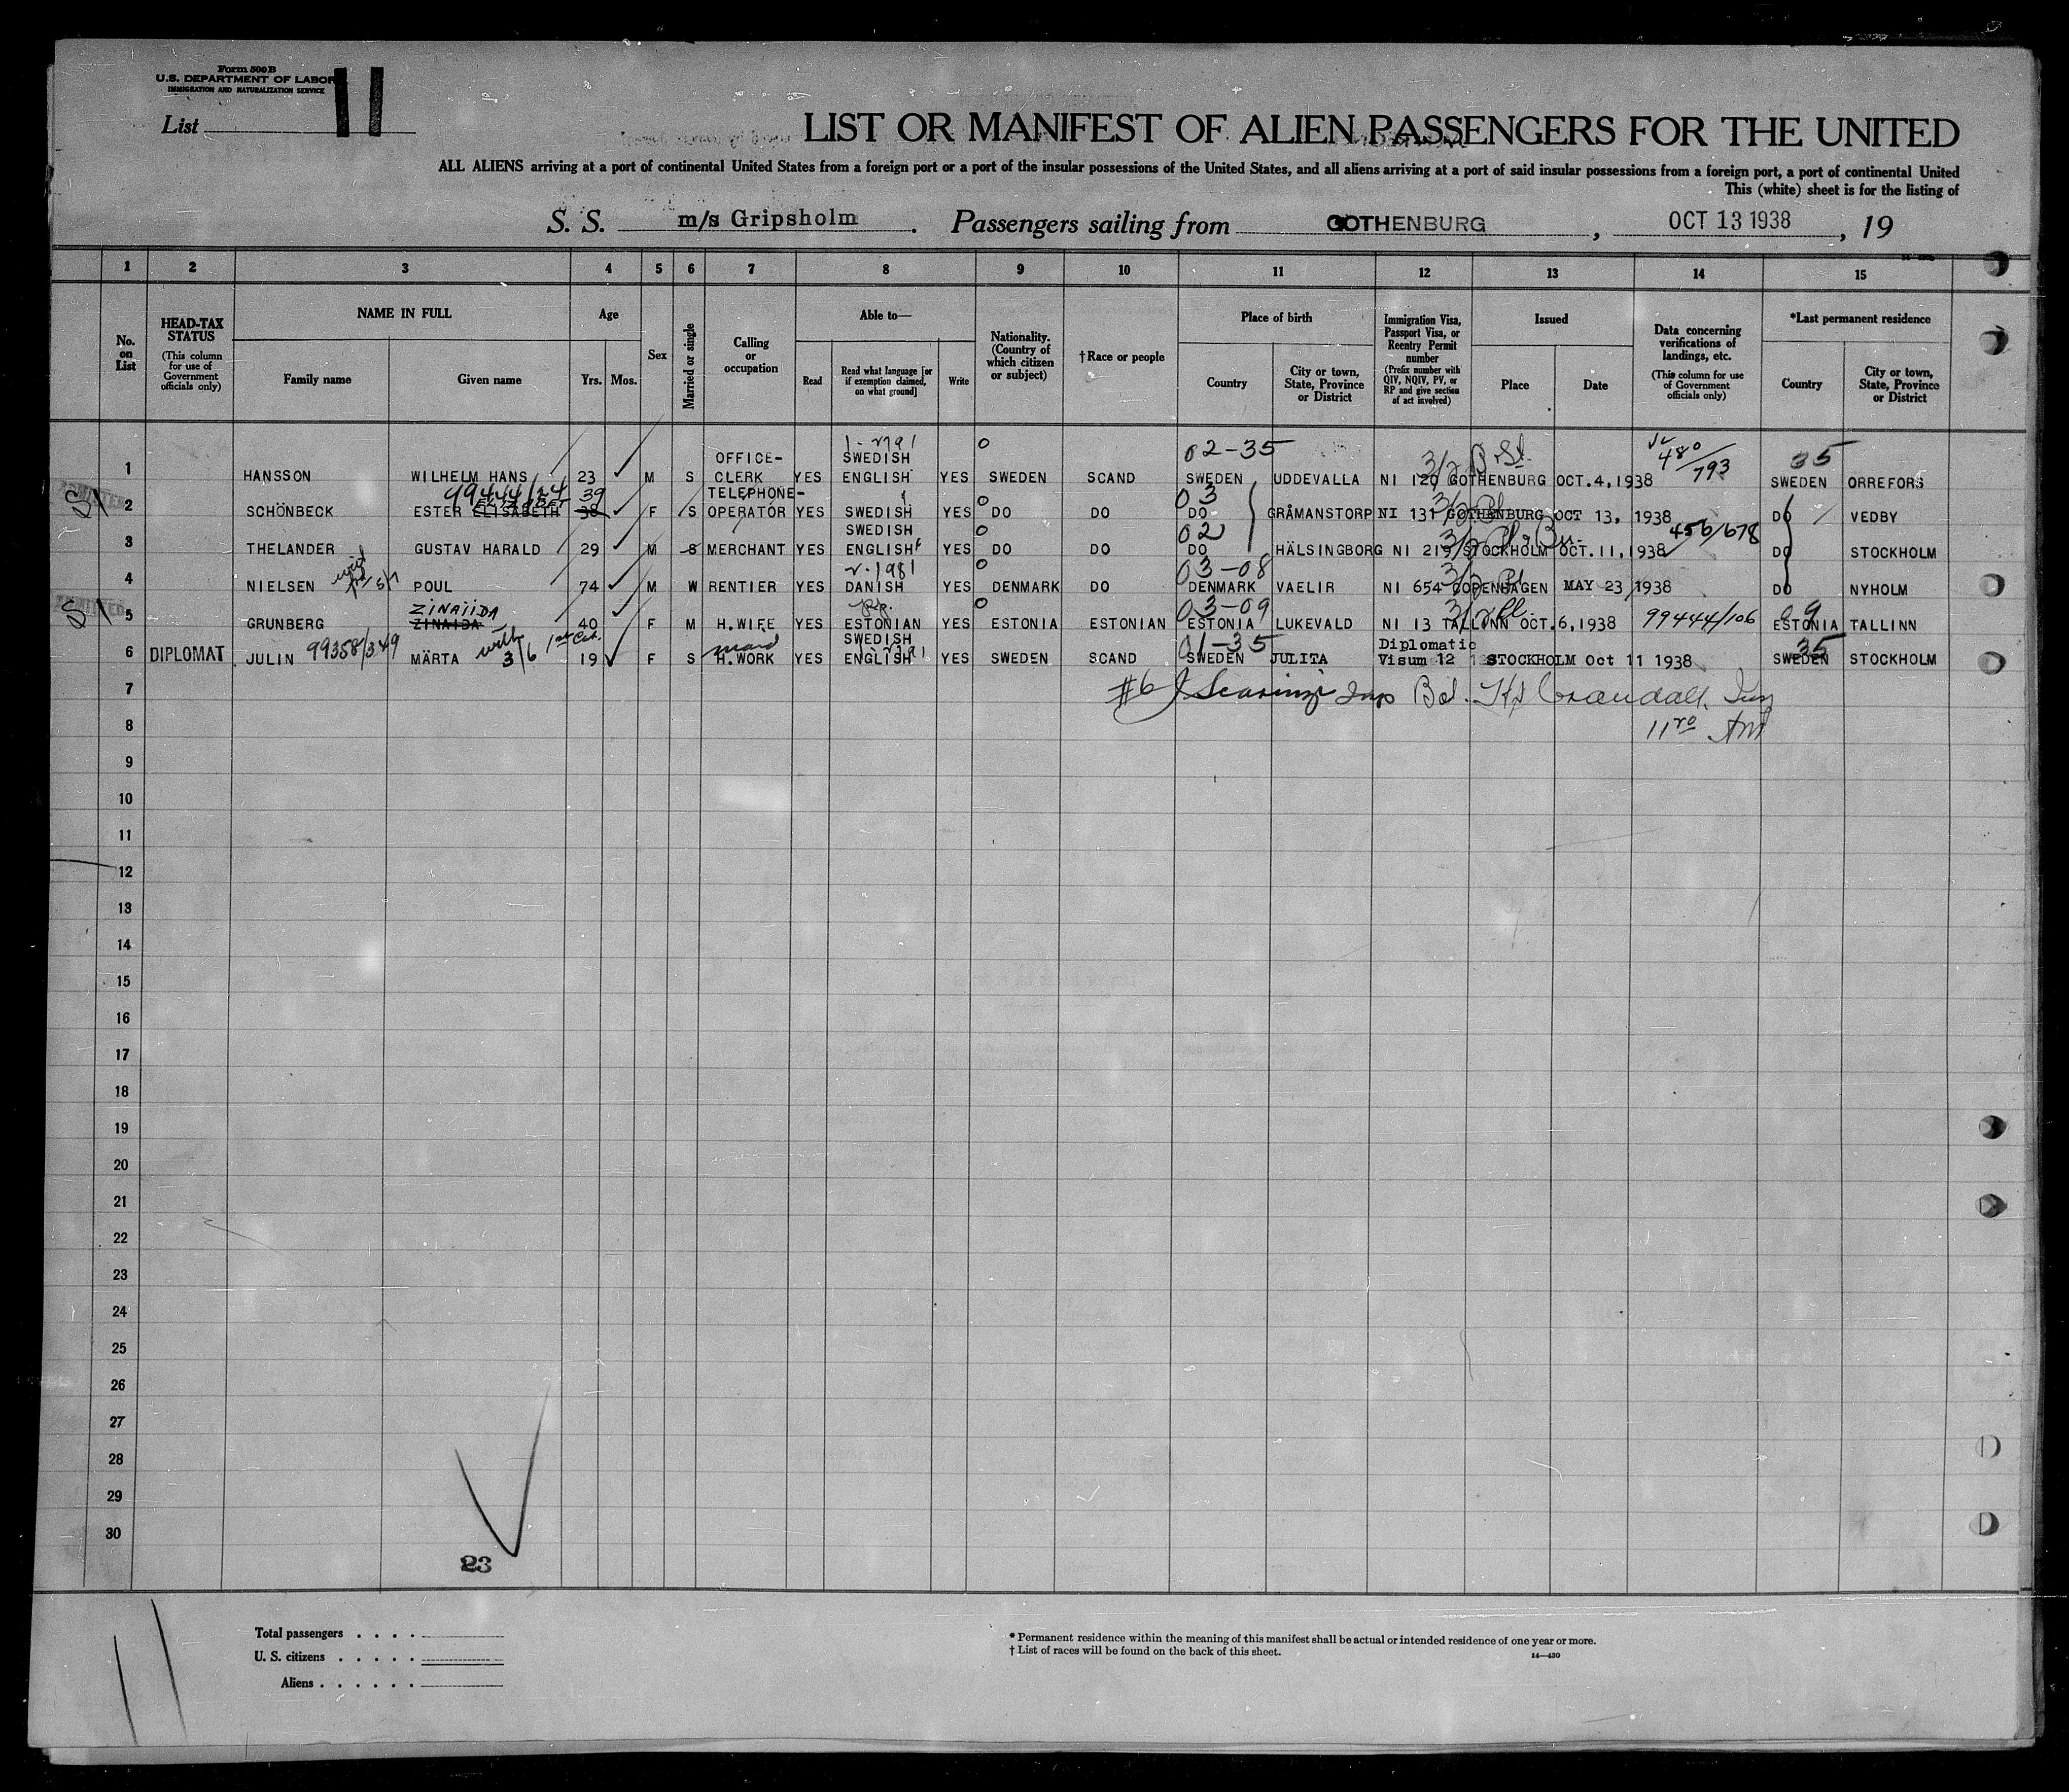 Form 500 B
U.S. DEPARTMENT OF LABOR
IMMIGRATION AND NATURALIZATION SERVICE
List 11
LIST OR MANIFEST OF ALIEN PASSENGERS FOR THE UNITED
ALL ALIENS arriving at a port of continental United States from a foreign port or a port of the insular possessions of the United States, and all aliens arriving at a port of said insular possessions from a foreign port, a port of continental United
This (white) sheet is for the listing of
S. S. m/s Gripsholm. Passengers sailing from GOTHENBURG, OCT 13 1938, 19
1 2 3 4 5 6 7 8 9 10 11 12 13 14 15
No. on List
HEAD-TAX STATUS
(This column for use of Government officials only)
NAME IN FULL
Family name Given name
Age
Yrs. Mos.
Sex
Married or single
Calling or occupation
Able to—
Read Read what language [or if exemption claimed, on what ground] Write
Nationality. (Country of which citizen or subject)
†Race or people
Place of birth
Country City or town, State, Province or District
Immigration Visa, Passport Visa, or Reentry Permit number
(Prefix number with QIV, NQIV, PV, or RP and give section of act involved)
Issued
Place Date
Data concerning verifications of landings, etc.
(This column for use of Government officials only)
*Last permanent residence
Country City or town, State, Province or District
02-35 480/793 35
1 HANSSON WILHELM HANS 23 M S OFFICE-CLERK YES SWEDISH ENGLISH YES SWEDEN SCAND SWEDEN UDDEVALLA NI 120 GOTHENBURG OCT.4,1938 SWEDEN ORREFORS
99444/24 39 03
ADMITTED
2 SCHÖNBECK ESTER ELISABETH 38 F S TELEPHONE-OPERATOR YES SWEDISH YES DO DO DO GRÅMANSTORP NI 131 GOTHENBURG OCT 13, 1938 DO VEDBY
02 456/678
3 THELANDER GUSTAV HARALD 29 M S MERCHANT YES SWEDISH ENGLISH YES DO DO DO HÄLSINGBORG NI 219 STOCKHOLM OCT.11,1938 DO STOCKHOLM
03-08
4 NIELSEN POUL 74 M W RENTIER YES DANISH YES DENMARK DO DENMARK VAELIR NI 654 COPENHAGEN MAY 23 1938 DO NYHOLM
ZINAIIDA 03-09 09
ADMITTED
5 GRUNBERG ZINAIDA 40 F M H.WIFE YES ESTONIAN YES ESTONIA ESTONIAN ESTONIA LUKEVALD NI 13 TALLINN OCT.6,1938 99444/106 ESTONIA TALLINN
99358/349 with 3/6 1st Cab. maid 01-35 35
6 DIPLOMAT JULIN MÄRTA 19 F S H.WORK YES SWEDISH ENGLISH YES SWEDEN SCAND SWEDEN JULITA Diplomatic Visum 12 STOCKHOLM Oct 11 1938 SWEDEN STOCKHOLM
7 #6
8
9
10
11
12
13
14
15
16
17
18
19
20
21
22
23
24
25
26
27
28
29
30
23
Total passengers . . . .
U. S. citizens . . . . .
Aliens . . . . . .
* Permanent residence within the meaning of this manifest shall be actual or intended residence of one year or more.
† List of races will be found on the back of this sheet.
14—430